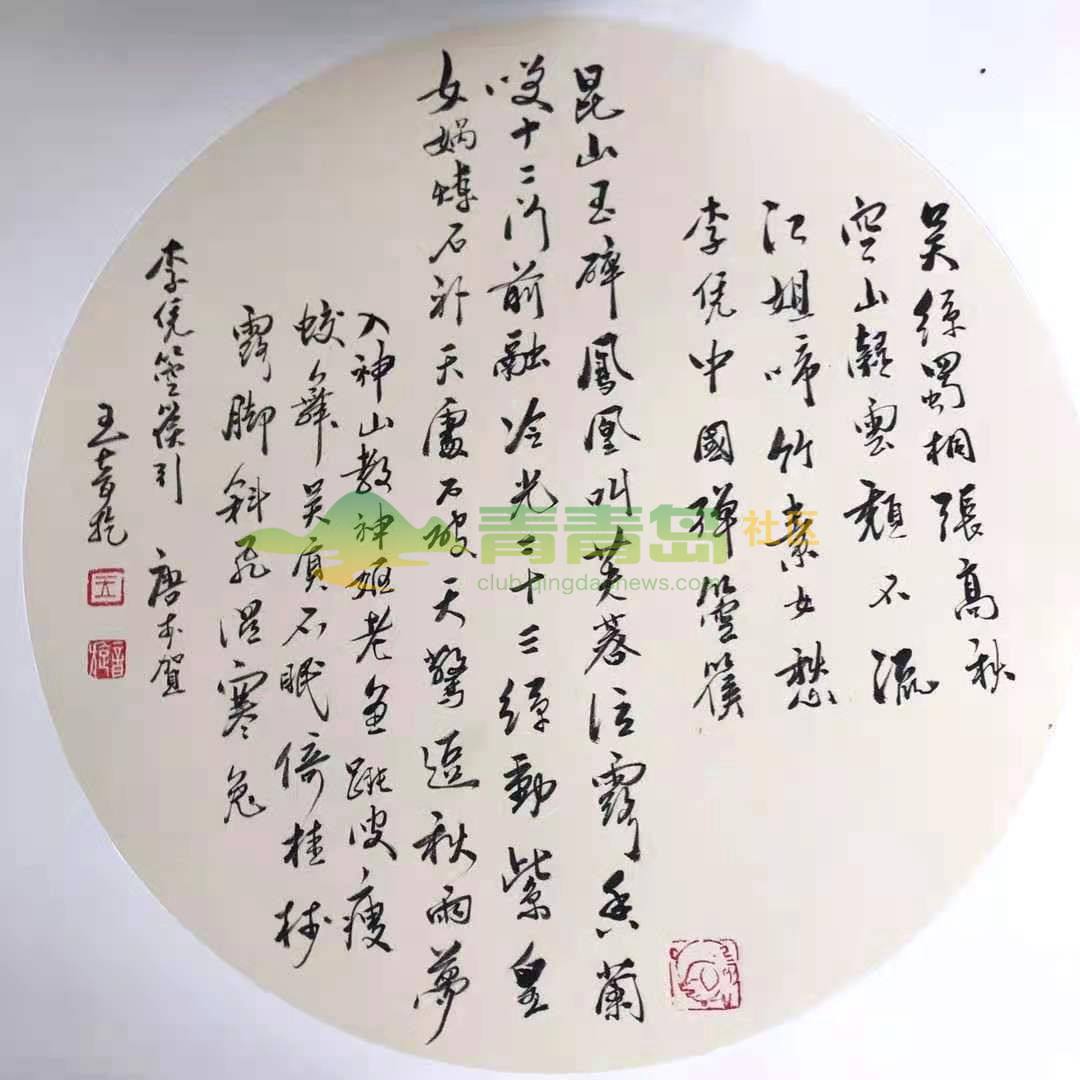 吴絲蜀桐張高秋
空山凝雲頹不流
江姐啼竹素女愁
李凭中國彈箜篌
昆山玉碎鳳凰叫芙蓉泣露香蘭
笑十二门前融冷光二十三絲動紫皇
女媧煉石补天處石破天驚逗秋雨夢
入神山教神妪老鱼跳波瘦
蛟舞吴質不眠倚桂树
露脚斜飛濕寒兔
李凭箜篌引 唐李賀
王音旋
王
音旋
青青岛社区
club.qingdaonews.com